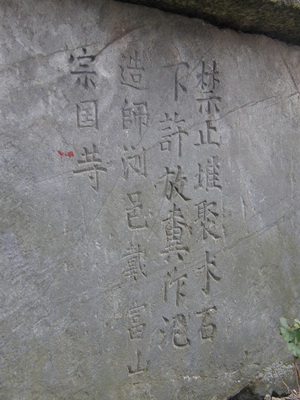 禁止堆聚木石
下許放糞作池
造師浏邑戴富山
宗国䒭